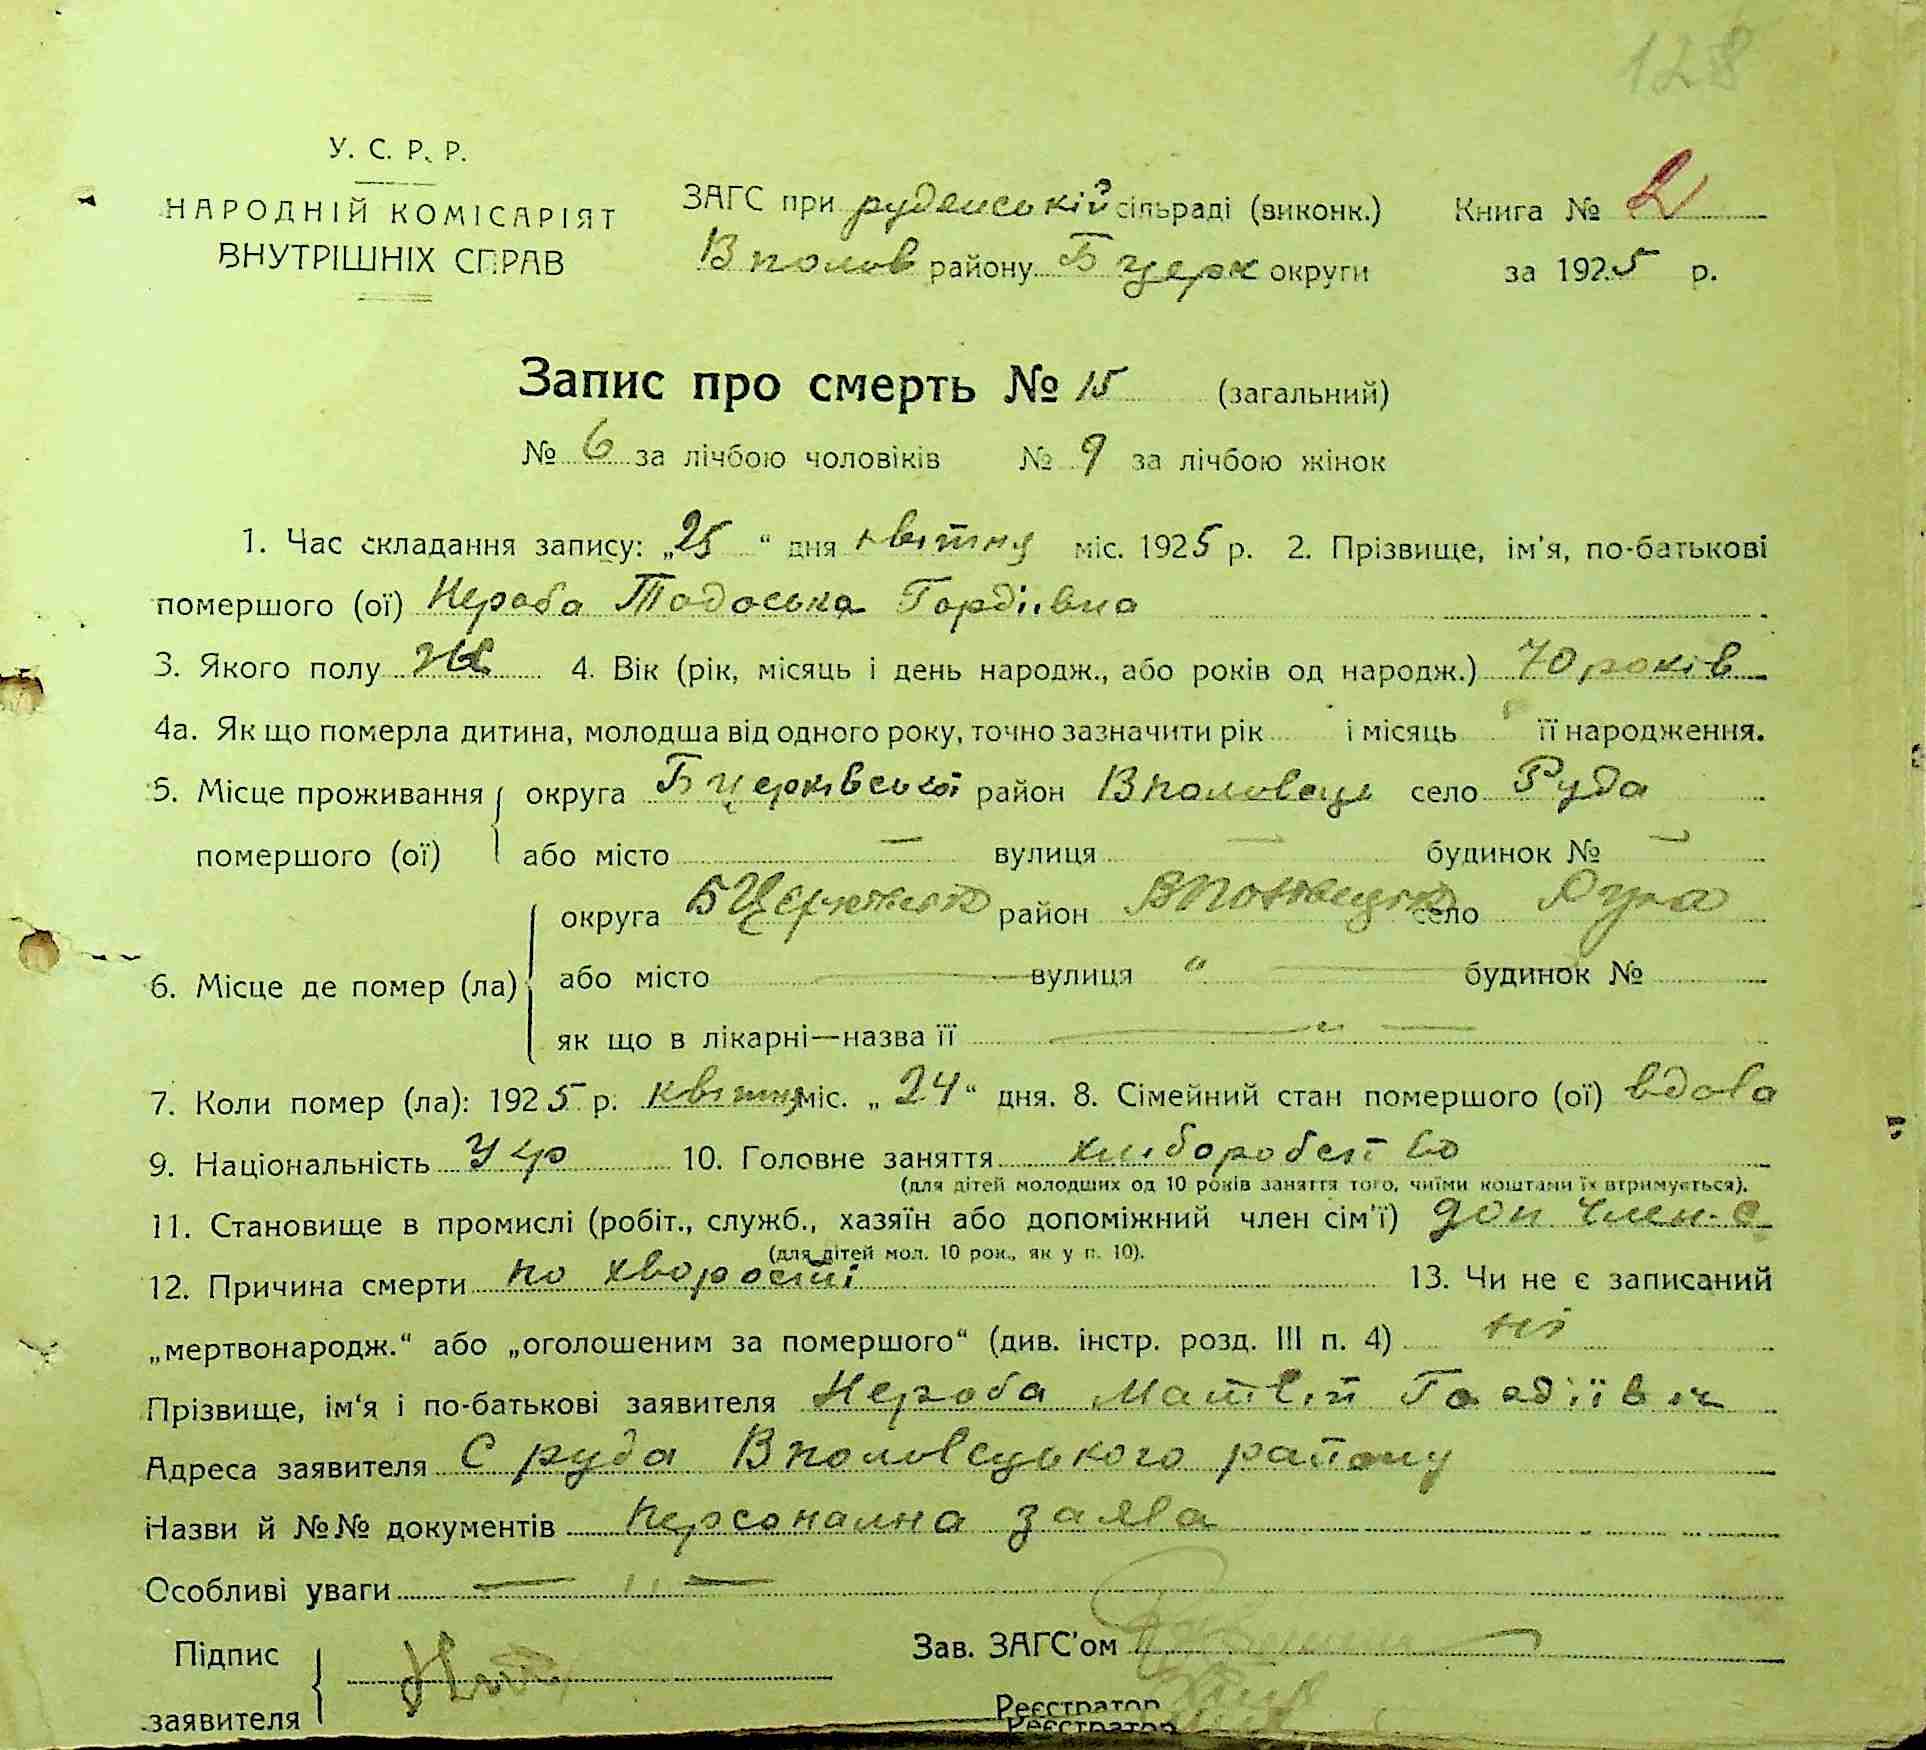 128
У. С. Р. Р.
НАРОДНІЙ КОМІСАРІЯТ
ВНУТРІШНІХ СПРАВ
ЗАГС при руденській сільраді (виконк.) Книга № 2
В полов району Б церк округи за 1925 р.
Запис про смерть № 15 (загальний)
№ 6 за лічбою чоловіків № 9 за лічбою жінок
1. Час складання запису: „25“ дня квітня міс. 1925 р. 2. Прізвище, ім'я, по-батькові
помершого (ої) Нероба Тодоська Гордіївна
3. Якого полу Ж 4. Вік (рік, місяць і день народж., або років од народж.) 70 років
4а. Як що померла дитина, молодша від одного року, точно зазначити рік і місяць її народження.
5. Місце проживання округа Бцерківської район Вполовецьк село Руда
помершого (ої) або місто — вулиця — будинок № —
округа БЦерківської район село Руда
6. Місце де помер (ла) або місто — вулиця " — будинок №
як що в лікарні—назва її — " —
7. Коли помер (ла): 1925 р. квітня міс. „24“ дня. 8. Сімейний стан помершого (ої) вдова
9. Національність Укр 10. Головне заняття хліборобство
(для дітей молодших од 10 років заняття того, чиїми коштами їх втримується).
11. Становище в промислі (робіт., служб., хазяїн або допоміжний член сім'ї) доп член. с
(для дітей мол. 10 рок., як у п. 10).
12. Причина смерти по хворості 13. Чи не є записаний
„мертвонародж.“ або „оголошеним за помершого“ (див. інстр. розд. III п. 4) ні
Прізвище, ім'я і по-батькові заявителя Нероба Матвій Гордіївич
Адреса заявителя С руда Вполовецького району
Назви й №№ документів персональна заява
Особливі уваги — " —
Підпис
заявителя
Зав. ЗАГС'ом
Реєстратор
Реєстратор